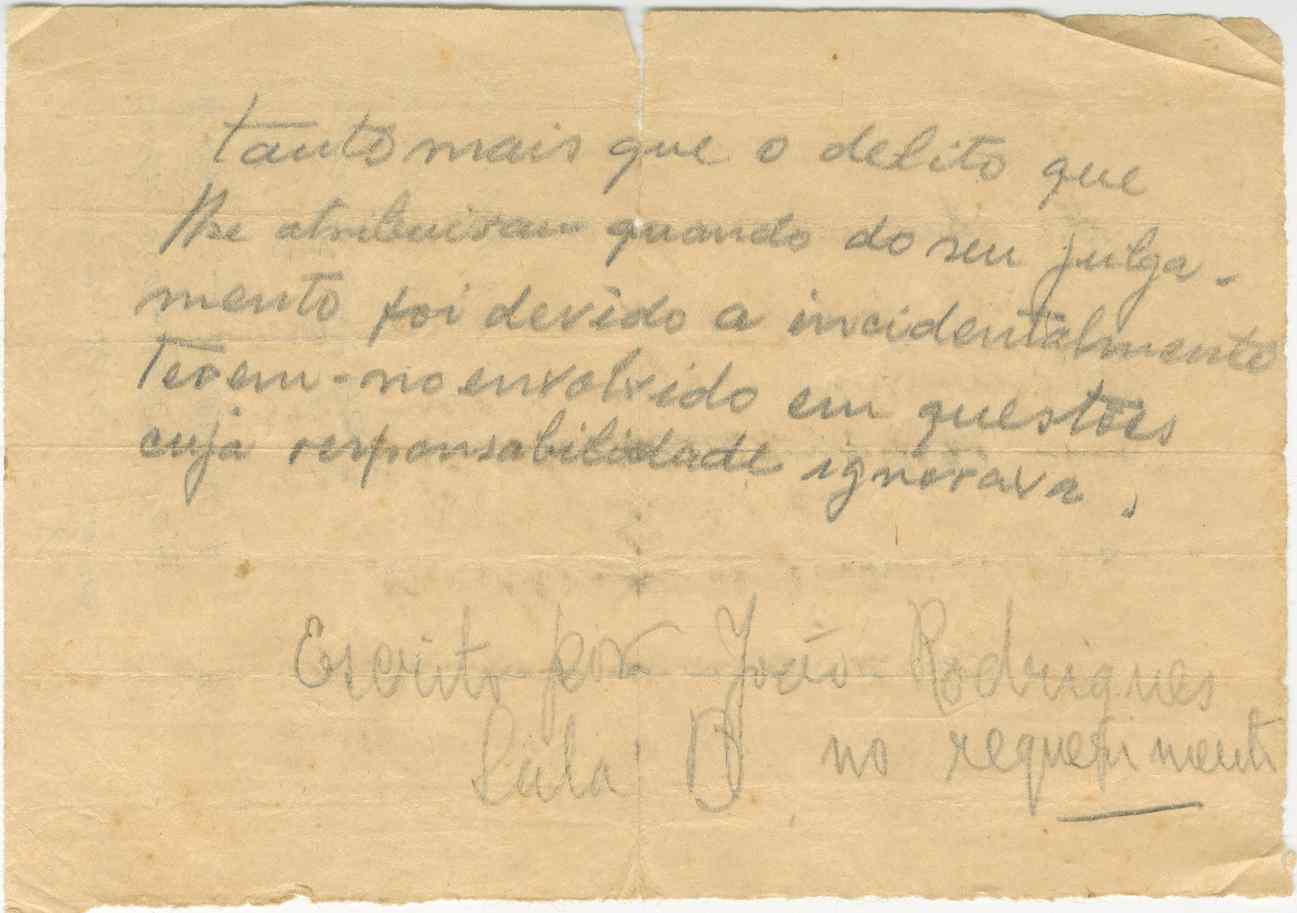 tanto mais que o delito que
lhe atribuiram quando do seu julga-
mento foi devido a incidentalmente
terem-no envolvido em questões
cuja responsabilidade ignorava.
Escrito por João Rodrigues
Sala B no requerimento